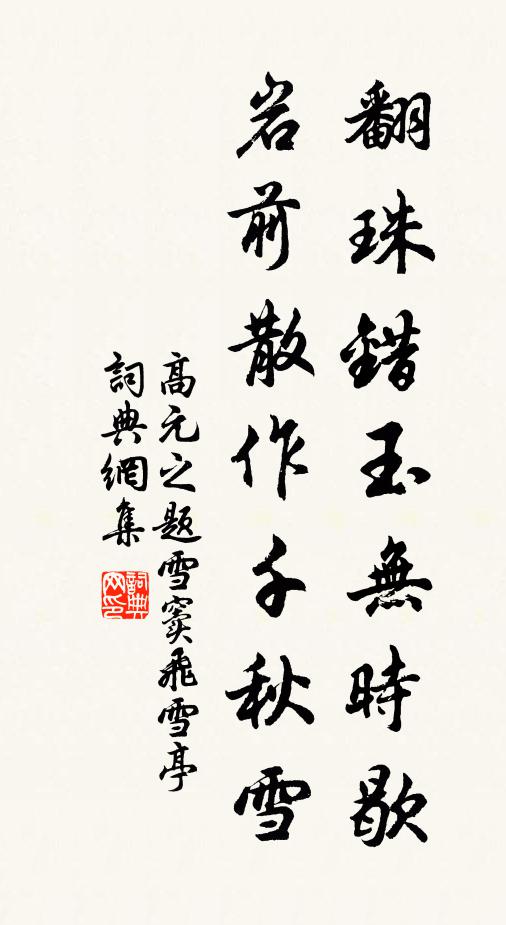 翻珠錯玉無時歇
岩前散作千秋雪
高元之題雪竇飛雪亭
詞典網集
詞典网印